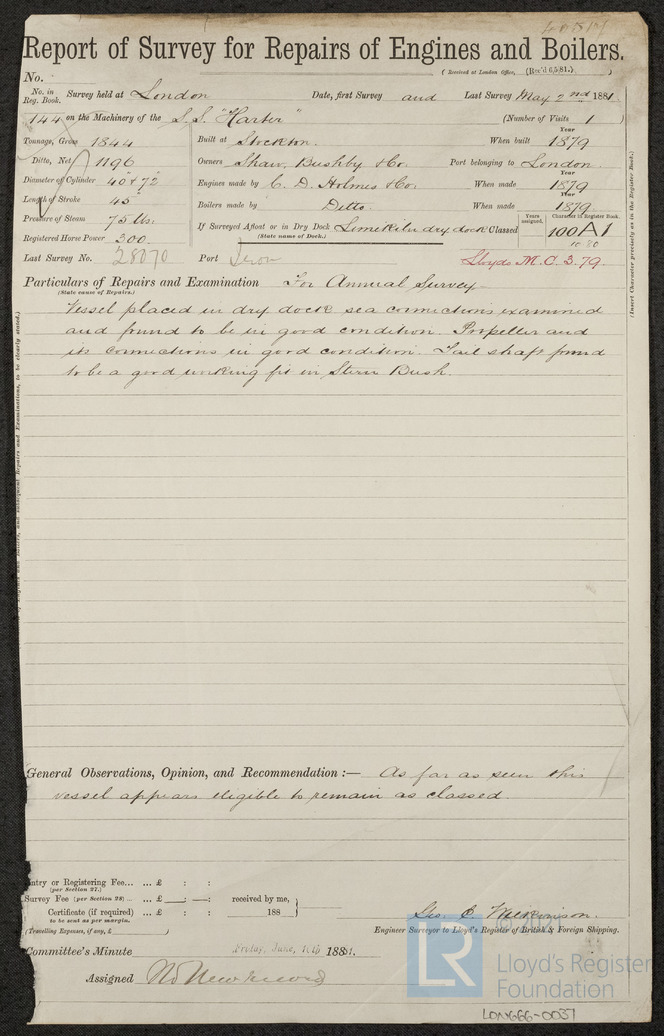 Report of Survey for Repairs of Engines and Boilers.
(Received at London Office, (Rec'd 6,5,81.) )
No.
No. in Reg. Book. Survey held at London Date, first Survey and Last Survey May 2nd 1881.
144 on the Machinery of the S.S. "Harter" (Number of Visits 1 )
Tonnage, Gross 1844 Built at Stockton. When built Year 1879
Ditto, Net 1196 Owners Shaw, Bushby & Co. Port belonging to London
Diameter of Cylinder 40 & 72 Engines made by C. D. Holmes & Co. When made Year 1879
Length of Stroke 45 Boilers made by Ditto. When made Year 1879.
Pressure of Steam 75 lbs. If Surveyed Afloat or in Dry Dock Limekiln dry dock Classed Years assigned. Character in Register Book. 100A1
(State name of Dock.)
Registered Horse Power 300. 10.80
Last Survey No. 28070 Port Lloyds M.C. 3.79.
Particulars of Repairs and Examination For Annual Survey
(State cause of Repairs.)
Vessel placed in dry dock sea connections examined
and found to be in good condition. Propeller and
its connections in good condition. Tail shaft found
to be a good working fit in Stern Bush.
(Insert Character precisely as in the Register Book.)
Engines and Boilers, and subsequent Repairs and Examinations, to be clearly stated.)
General Observations, Opinion, and Recommendation :— As far as seen this
vessel appears eligible to remain as classed.
Entry or Registering Fee... ... £ : :
(per Section 27.)
Survey Fee (per Section 28) ... ... £ — : — : received by me,
Certificate (if required) ... £ : : 188
to be sent as per margin.
(Travelling Expenses, if any, £ )
Geo. C. Wilkinson.
Engineer Surveyor to Lloyd's Register of British & Foreign Shipping.
Committee's Minute Friday, June, 10th 1881.
Assigned No New record
© 2021
LR
Lloyd's Register
Foundation
LON666-0037